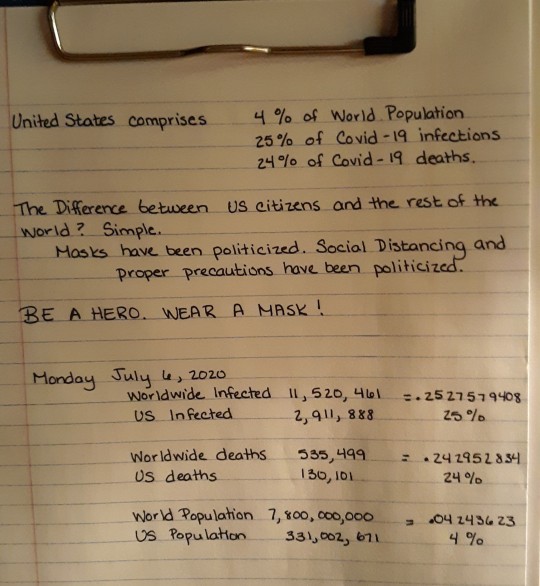 United States comprises 4% of World Population
25% of Covid-19 infections
24% of Covid-19 deaths.
The Difference between US citizens and the rest of the
world? Simple.
Masks have been politicized. Social Distancing and
proper precautions have been politicized.
BE A HERO. WEAR A MASK!
Monday July 6, 2020
Worldwide Infected 11,520,461 = .2527579408
US Infected 2,911,888 25%
Worldwide deaths 535,499 = .242952834
US deaths 130,101 24%
World Population 7,800,000,000 = .04243623
US Population 331,002,671 4%